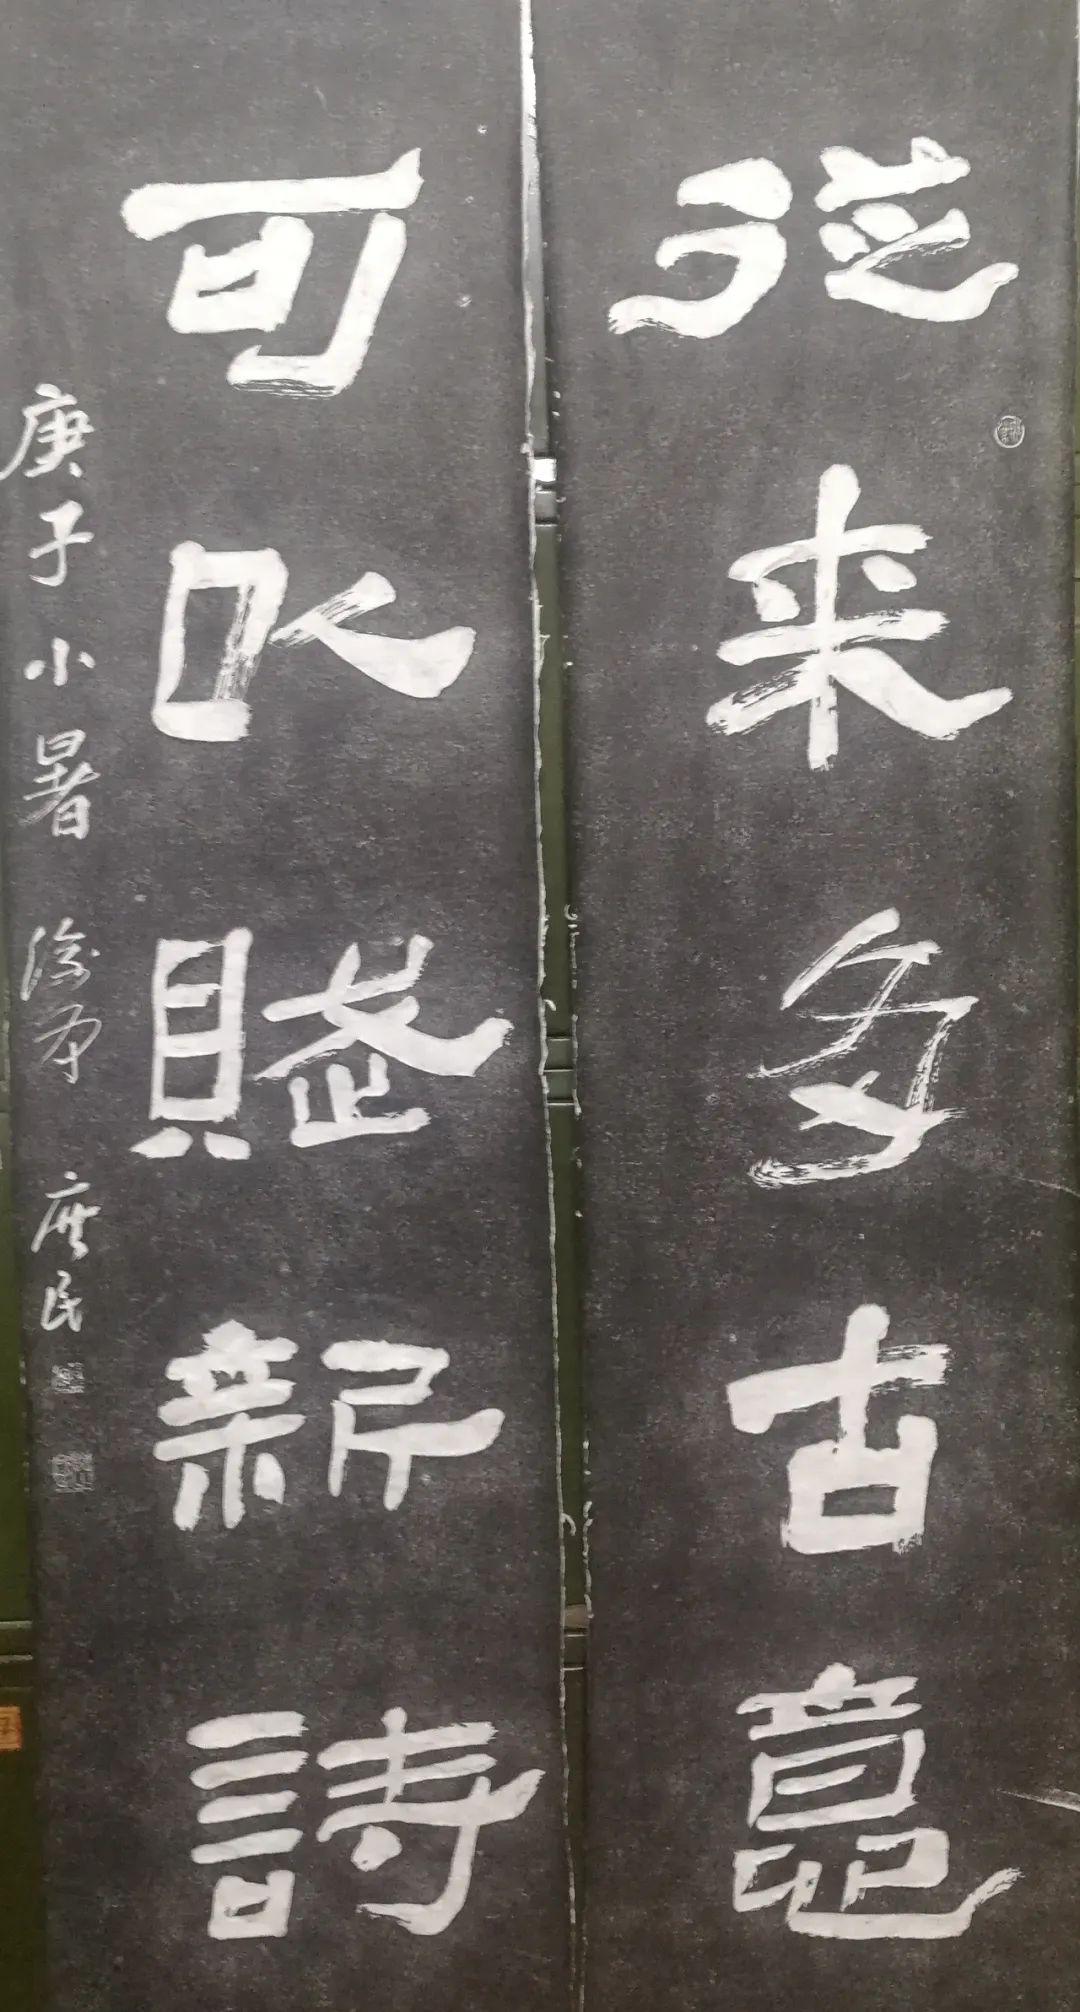 從来多古意
可以賦新詩
庚子小暑 庶民